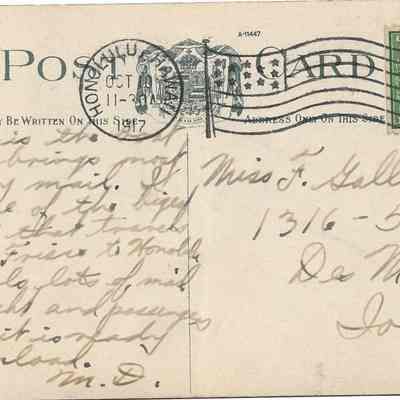 A-11447
POST CARD
HONOLULU, HAWAII
OCT
11-30A
1917
Y BE WRITTEN ON THIS SIDE
ADDRESS ONLY ON THIS SIDE
is the
brings most
mail. I
e of the
that travel
Frisco to Honolu
lots of mail
and passengers
it is ready
load.
M. D.
Miss F. Gall
1316-5
Des M
Io